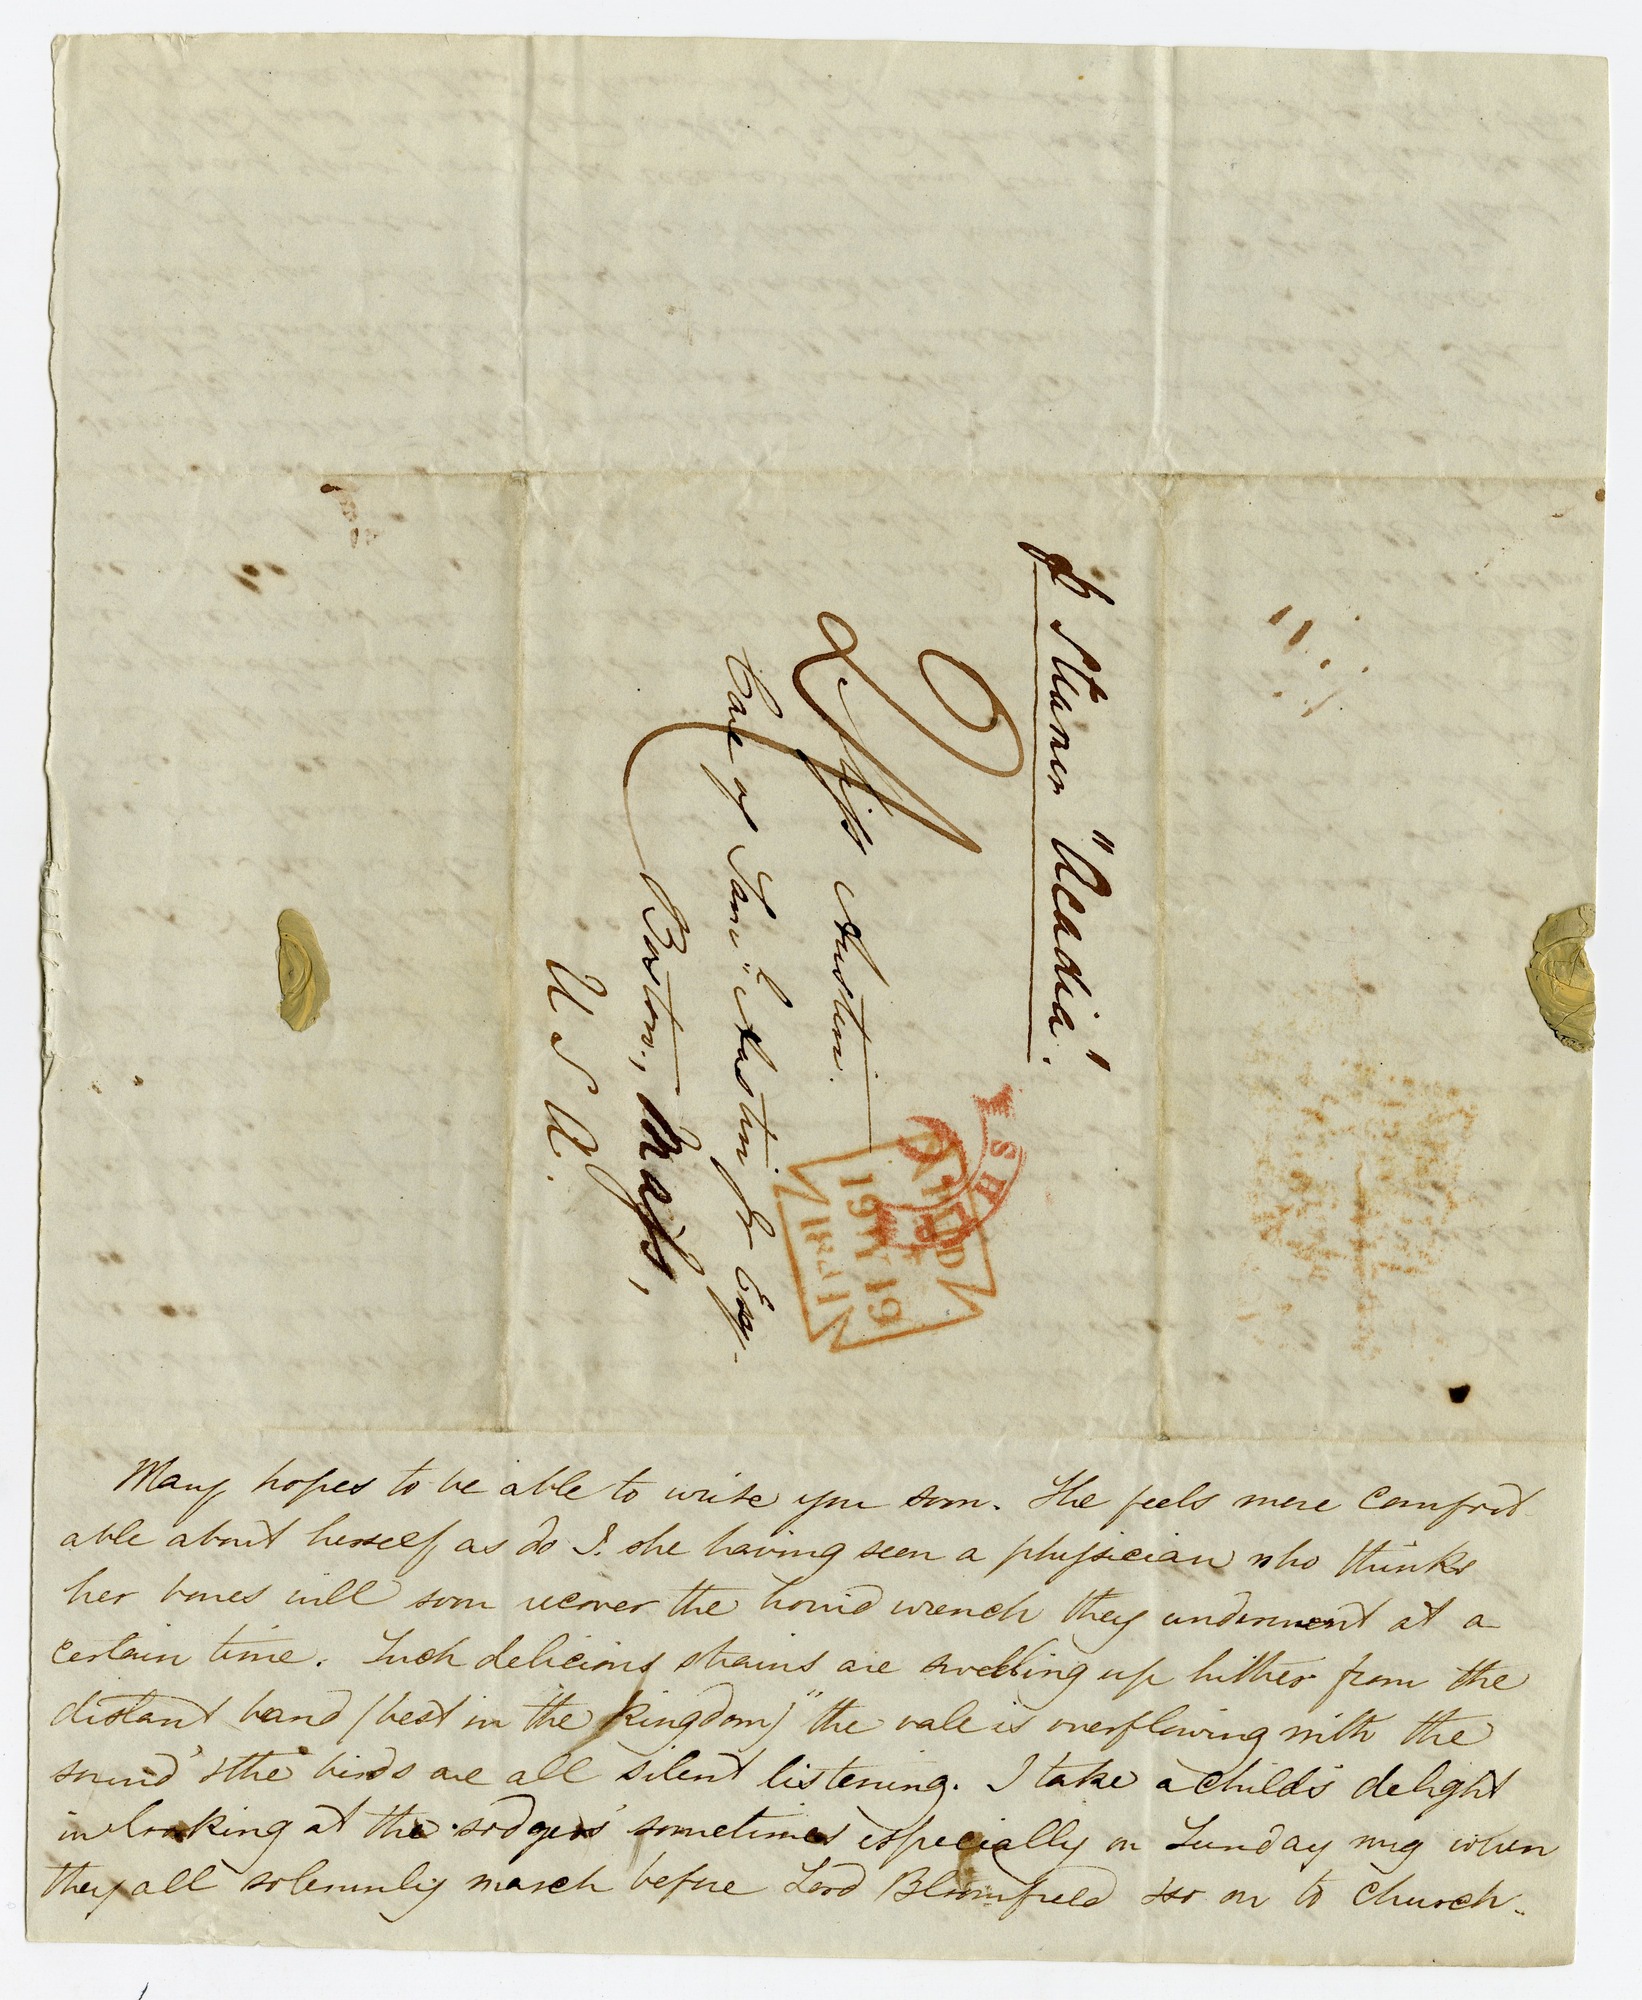 pr Steamer "Acadia".
Miss Austin.
Care of Saml. Austin Jr Esq.
Boston, Mass,
U S A.
PAID
19 MY 19
SH
Mary hopes to be able to write you soon. She feels more comfort
able about herself as do I. she having seen a physician who thinks
her bones will soon recover the horrid wrench they underwent at a
certain time. Such delicious strains are swelling up hither from the
distant band (best in the kingdom) "the vale is overflowing with the
sound" & the birds are all silent listening. I take a child's delight
in looking at the 'sodgers' sometimes especially on Sunday mg when
they all solemnly march before Lord Bloomfield & so on to church.